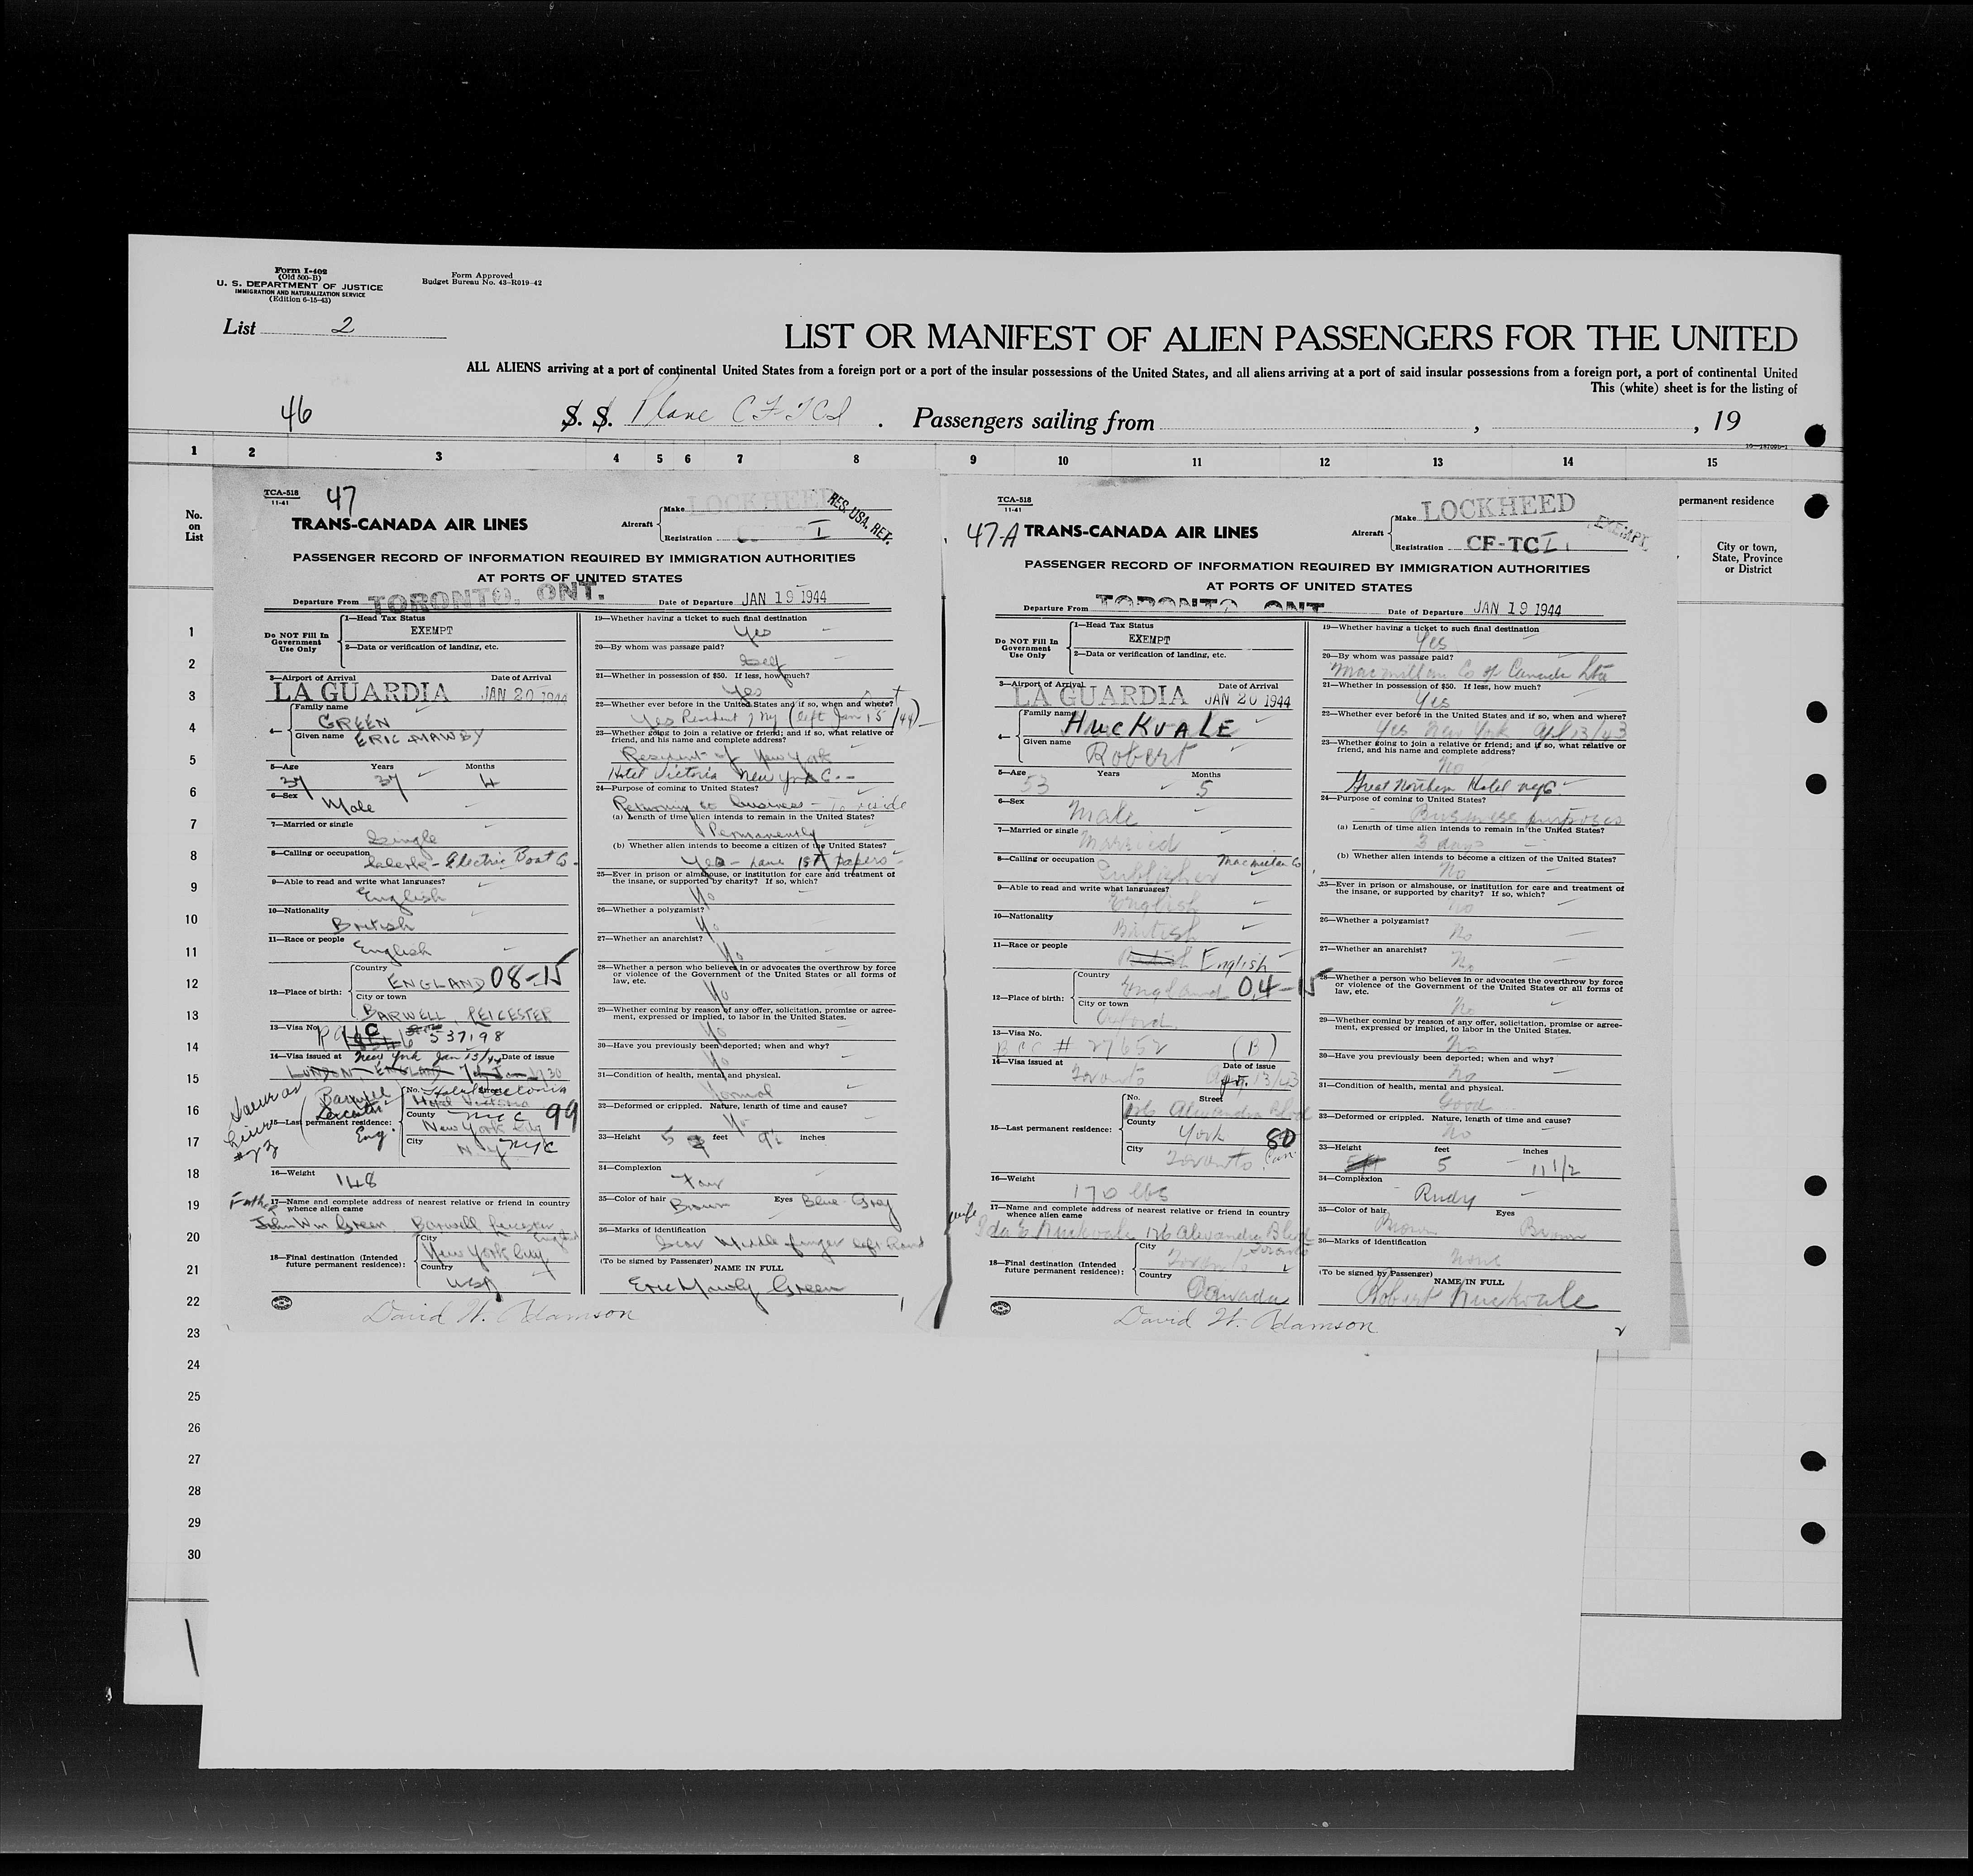 Form I-402
(Old 500-B)
U. S. DEPARTMENT OF JUSTICE
IMMIGRATION AND NATURALIZATION SERVICE
(Edition 6-15-43)
Form Approved
Budget Bureau No. 43-R019-42
List 2
LIST OR MANIFEST OF ALIEN PASSENGERS FOR THE UNITED
ALL ALIENS arriving at a port of continental United States from a foreign port or a port of the insular possessions of the United States, and all aliens arriving at a port of said insular possessions from a foreign port, a port of continental United
This (white) sheet is for the listing of
46
S. S. Plane CF-TCI . Passengers sailing from , , 19
1 2 3 4 5 6 7 8 9 10 11 12 13 14 15
No.
on
List
permanent residence
City or town,
State, Province
or District
1
2
3
4
5
6
7
8
9
10
11
12
13
14
15
16
17
18
19
20
21
22
23
24
25
26
27
28
29
30
TCA-518
11-41
47
TRANS-CANADA AIR LINES
Aircraft
Make LOCKHEED
Registration I
RES. USA. RET.
PASSENGER RECORD OF INFORMATION REQUIRED BY IMMIGRATION AUTHORITIES
AT PORTS OF UNITED STATES
Departure From TORONTO, ONT.
Date of Departure JAN 19 1944
Do NOT Fill In
Government
Use Only
1—Head Tax Status
EXEMPT
2—Data or verification of landing, etc.
3—Airport of Arrival Date of Arrival
LA GUARDIA JAN 20 1944
4—
Family name
GREEN
Given name ERIC MAWBY
5—Age Years Months
37 37 4
6—Sex
Male
7—Married or single
Single
8—Calling or occupation
Clerk - Electric Boat Co.
9—Able to read and write what languages?
English
10—Nationality
British
11—Race or people
English
12—Place of birth:
Country
ENGLAND 08-15
City or town
BARWELL, LEICESTER
13—Visa No.
537198
14—Visa issued at New York Jan 13/44 Date of issue
LONDON, ENGLAND 1930
15—Last permanent residence:
Barwell
Leicester
Eng.
No. Street
Hotel Victoria
County NYC 99
New York City
City NYC
16—Weight
148
17—Name and complete address of nearest relative or friend in country
whence alien came
Father
John Wm Green Barwell Leicester
England
18—Final destination (Intended
future permanent residence):
City
New York City
Country
USA
19—Whether having a ticket to such final destination
Yes
20—By whom was passage paid?
Self
21—Whether in possession of $50. If less, how much?
Yes
22—Whether ever before in the United States and if so, when and where?
Yes Resident of NY (left Jan 15/44)
23—Whether going to join a relative or friend; and if so, what relative or
friend, and his name and complete address?
Resident of New York
Hotel Victoria New York C.
24—Purpose of coming to United States?
Returning to business - To reside
(a) Length of time alien intends to remain in the United States?
Permanently
(b) Whether alien intends to become a citizen of the United States?
Yes - have 1st papers
25—Ever in prison or almshouse, or institution for care and treatment of
the insane, or supported by charity? If so, which?
No
26—Whether a polygamist?
No
27—Whether an anarchist?
No
28—Whether a person who believes in or advocates the overthrow by force
or violence of the Government of the United States or all forms of
law, etc.
No
29—Whether coming by reason of any offer, solicitation, promise or agree-
ment, expressed or implied, to labor in the United States.
No
30—Have you previously been deported; when and why?
No
31—Condition of health, mental and physical.
Normal
32—Deformed or crippled. Nature, length of time and cause?
No
33—Height 5 feet 9½ inches
34—Complexion
Fair
35—Color of hair Eyes
Brown Blue-Grey
36—Marks of identification
Scar Middle finger left hand
(To be signed by Passenger)
NAME IN FULL
Eric Mawby Green
David W. Adamson
1
TCA-518
11-41
47-A
TRANS-CANADA AIR LINES
Aircraft
Make LOCKHEED
Registration CF-TCI
EXEMPT.
PASSENGER RECORD OF INFORMATION REQUIRED BY IMMIGRATION AUTHORITIES
AT PORTS OF UNITED STATES
Departure From TORONTO, ONT.
Date of Departure JAN 19 1944
Do NOT Fill In
Government
Use Only
1—Head Tax Status
EXEMPT
2—Data or verification of landing, etc.
3—Airport of Arrival Date of Arrival
LA GUARDIA JAN 20 1944
4—
Family name
HUCKVALE
Given name
Robert
5—Age Years Months
53 5
6—Sex
Male
7—Married or single
Married
8—Calling or occupation
Publisher Macmillan Co
9—Able to read and write what languages?
English
10—Nationality
British
11—Race or people
English
12—Place of birth:
Country
England 04-15
City or town
Oxford
13—Visa No.
BCC # 27652 (B)
14—Visa issued at Date of issue
Toronto Apr. 13/43
15—Last permanent residence:
No. Street
176 Alexandra Blvd
County
York 80
City
Toronto Can.
16—Weight
170 lbs
17—Name and complete address of nearest relative or friend in country
whence alien came
wife
Ida E. Huckvale 176 Alexandra Blvd
Toronto
18—Final destination (Intended
future permanent residence):
City
Toronto
Country
Canada
19—Whether having a ticket to such final destination
Yes
20—By whom was passage paid?
Macmillan Co of Canada Ltd
21—Whether in possession of $50. If less, how much?
Yes
22—Whether ever before in the United States and if so, when and where?
Yes New York Apl 13/43
23—Whether going to join a relative or friend; and if so, what relative or
friend, and his name and complete address?
No
Great Northern Hotel NYC
24—Purpose of coming to United States?
Business purposes
(a) Length of time alien intends to remain in the United States?
3 days
(b) Whether alien intends to become a citizen of the United States?
No
25—Ever in prison or almshouse, or institution for care and treatment of
the insane, or supported by charity? If so, which?
No
26—Whether a polygamist?
No
27—Whether an anarchist?
No
28—Whether a person who believes in or advocates the overthrow by force
or violence of the Government of the United States or all forms of
law, etc.
No
29—Whether coming by reason of any offer, solicitation, promise or agree-
ment, expressed or implied, to labor in the United States.
No
30—Have you previously been deported; when and why?
No
31—Condition of health, mental and physical.
Good
32—Deformed or crippled. Nature, length of time and cause?
No
33—Height feet inches
5 11 1/2
34—Complexion
Rudy
35—Color of hair Eyes
Brown Brown
36—Marks of identification
None
(To be signed by Passenger)
NAME IN FULL
Robert Huckvale
David W. Adamson
2